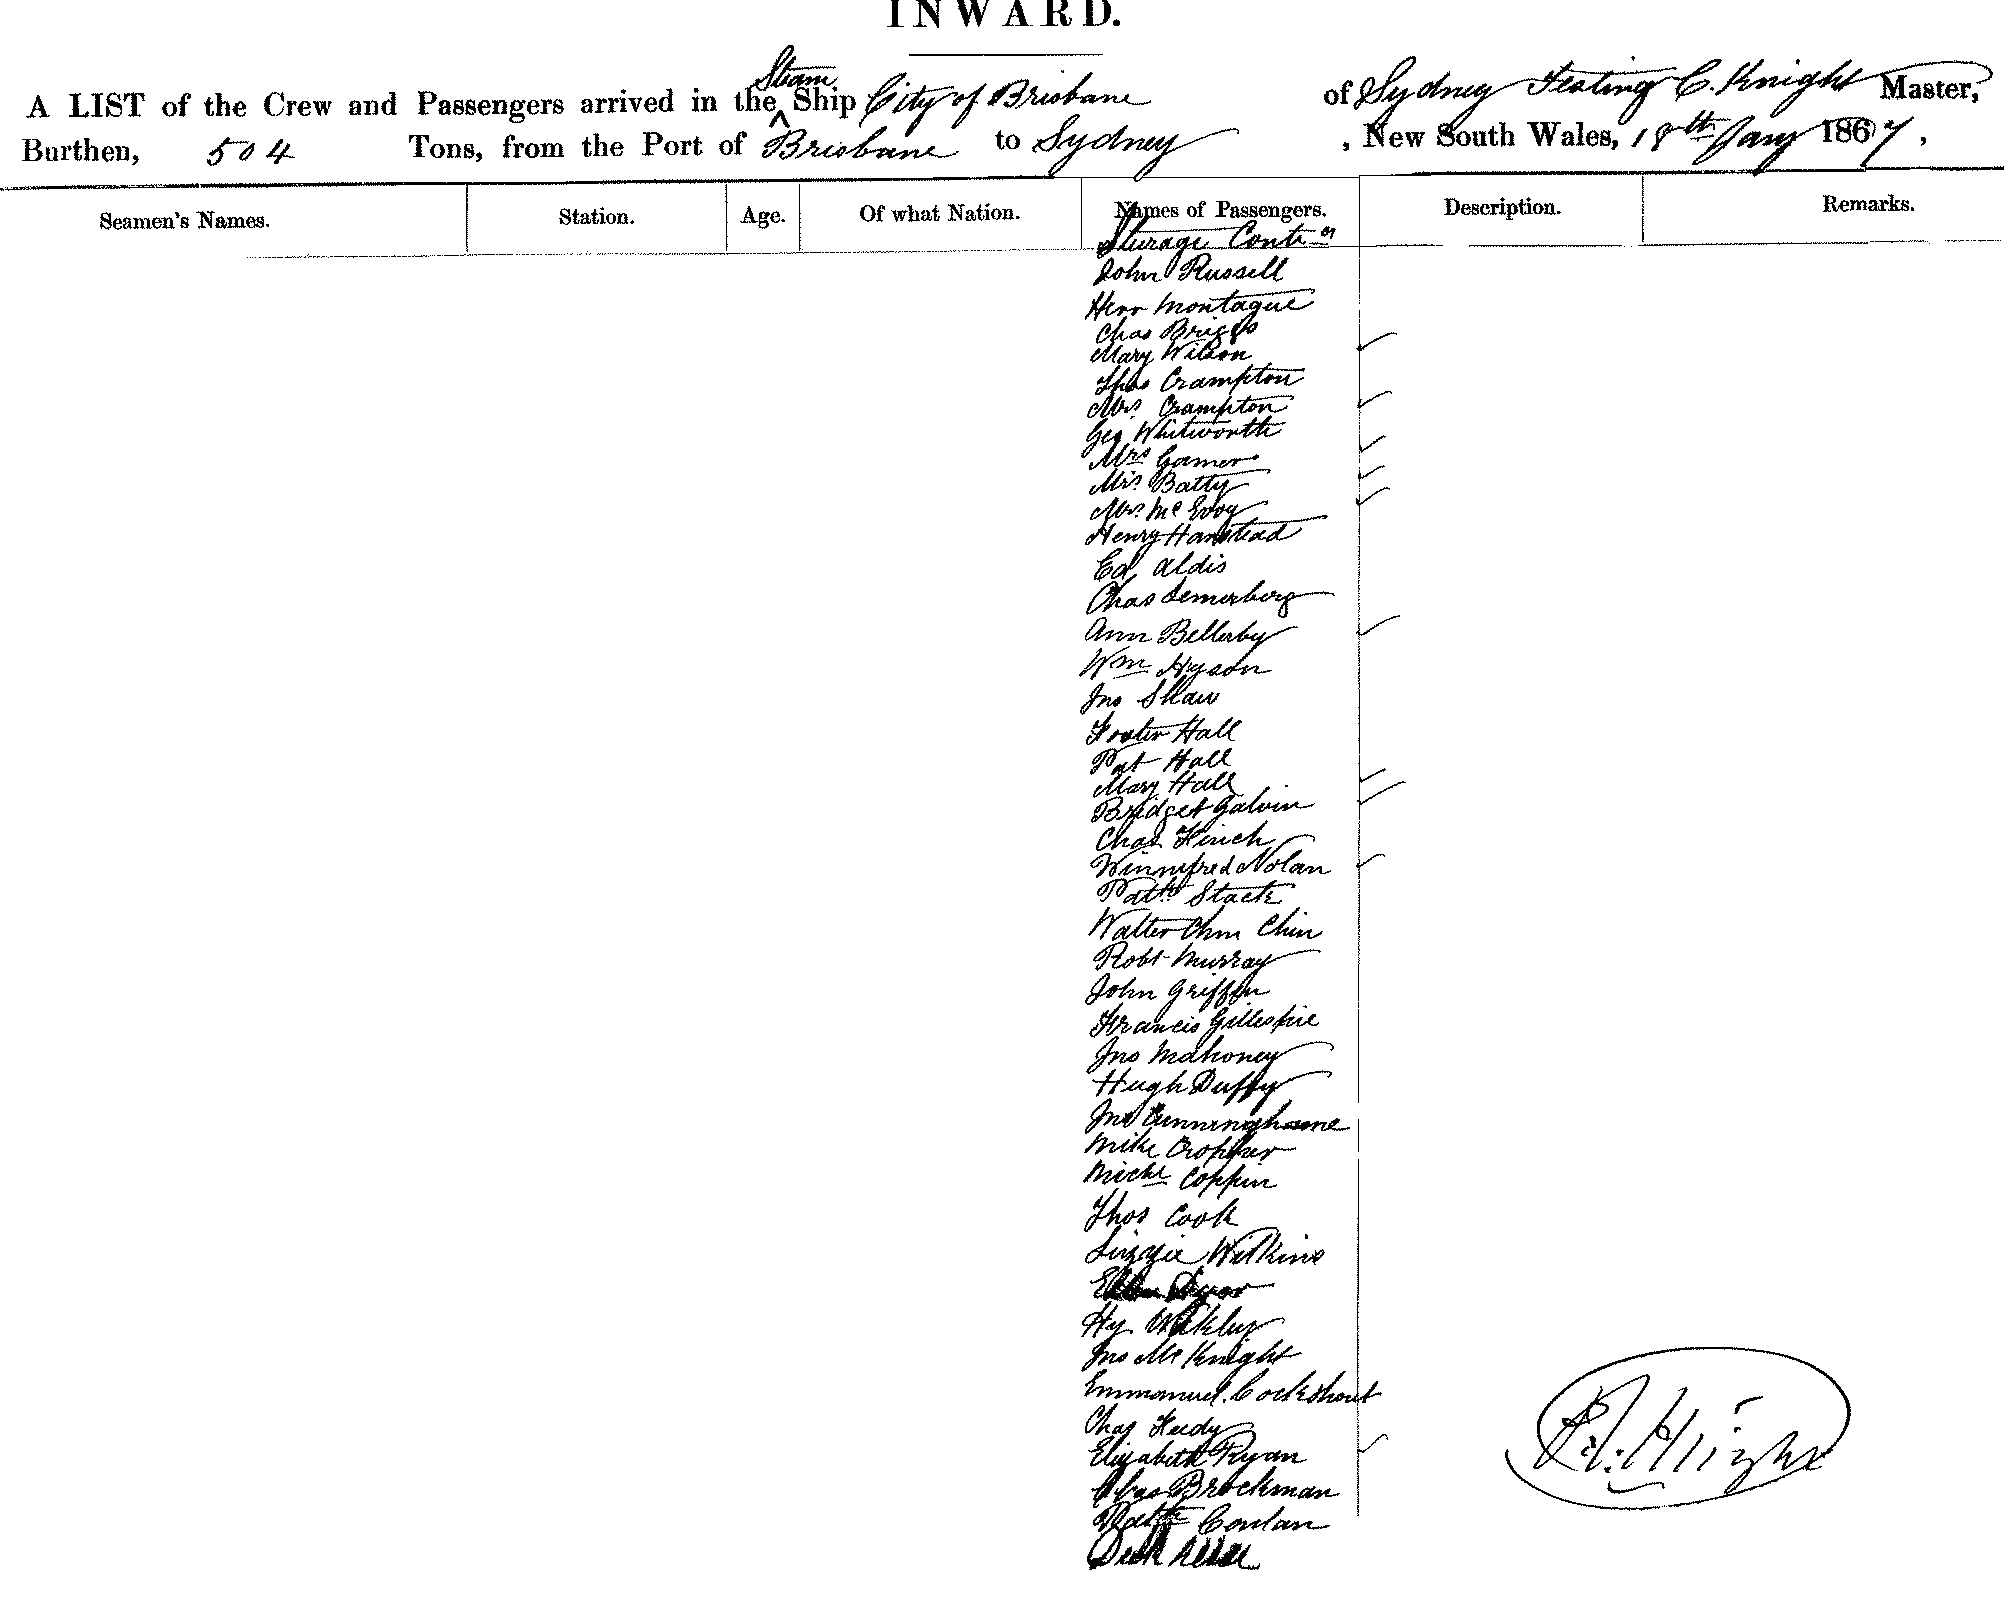 INWARD.
A LIST of the Crew and Passengers arrived in the Steam Ship City of Brisbane of Sydney Testing C. Knight Master,
Burthen, 504 Tons, from the Port of Brisbane to Sydney , New South Wales, 18th Jany 1867,
Seamen's Names. Station. Age. Of what Nation. Names of Passengers. Description. Remarks.
Sturage Conti on
John Russell
Herr Montague
Chas Briggs
Mary Wilson
Thos Crampton
Mrs Crampton
Geo Whitworth
Mrs Garner
Mrs Batty
Mrs McEvoy
Henry Hanstead
Ed Aldis
Chas Lemerberg
Ann Bellerby
Wm Hyson
Jno Shaw
Foster Hall
Pat Hall
Mary Hall
Bridget Galvin
Chas Finch
Winnifred Nolan
Patk Stack
Walter Chin
Robt Murray
John Griffin
Francis Gillespie
Jno Mahoney
Hugh Duffy
Jno Cunninghame
Mike Cropper
Michl Coppin
Thos Cook
Lizzie Watkins
Ellen
Hy
Jno McKnight
Emmanuel Cockshout
Chas
Elizabeth Ryan
Chas Brockman
Patk Conlan